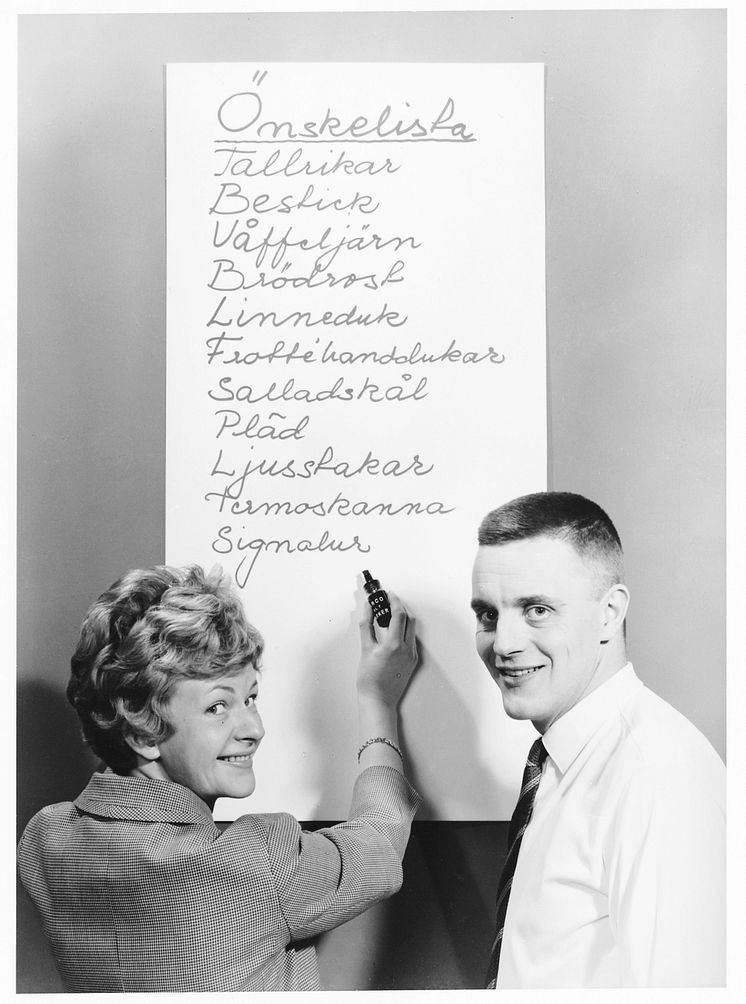 Önskelista
Tallrikar
Bestick
Våffeljärn
Brödrost
Linneduk
Frottéhanddukar
Salladskål
Pläd
Ljusstakar
Termoskanna
Signalur